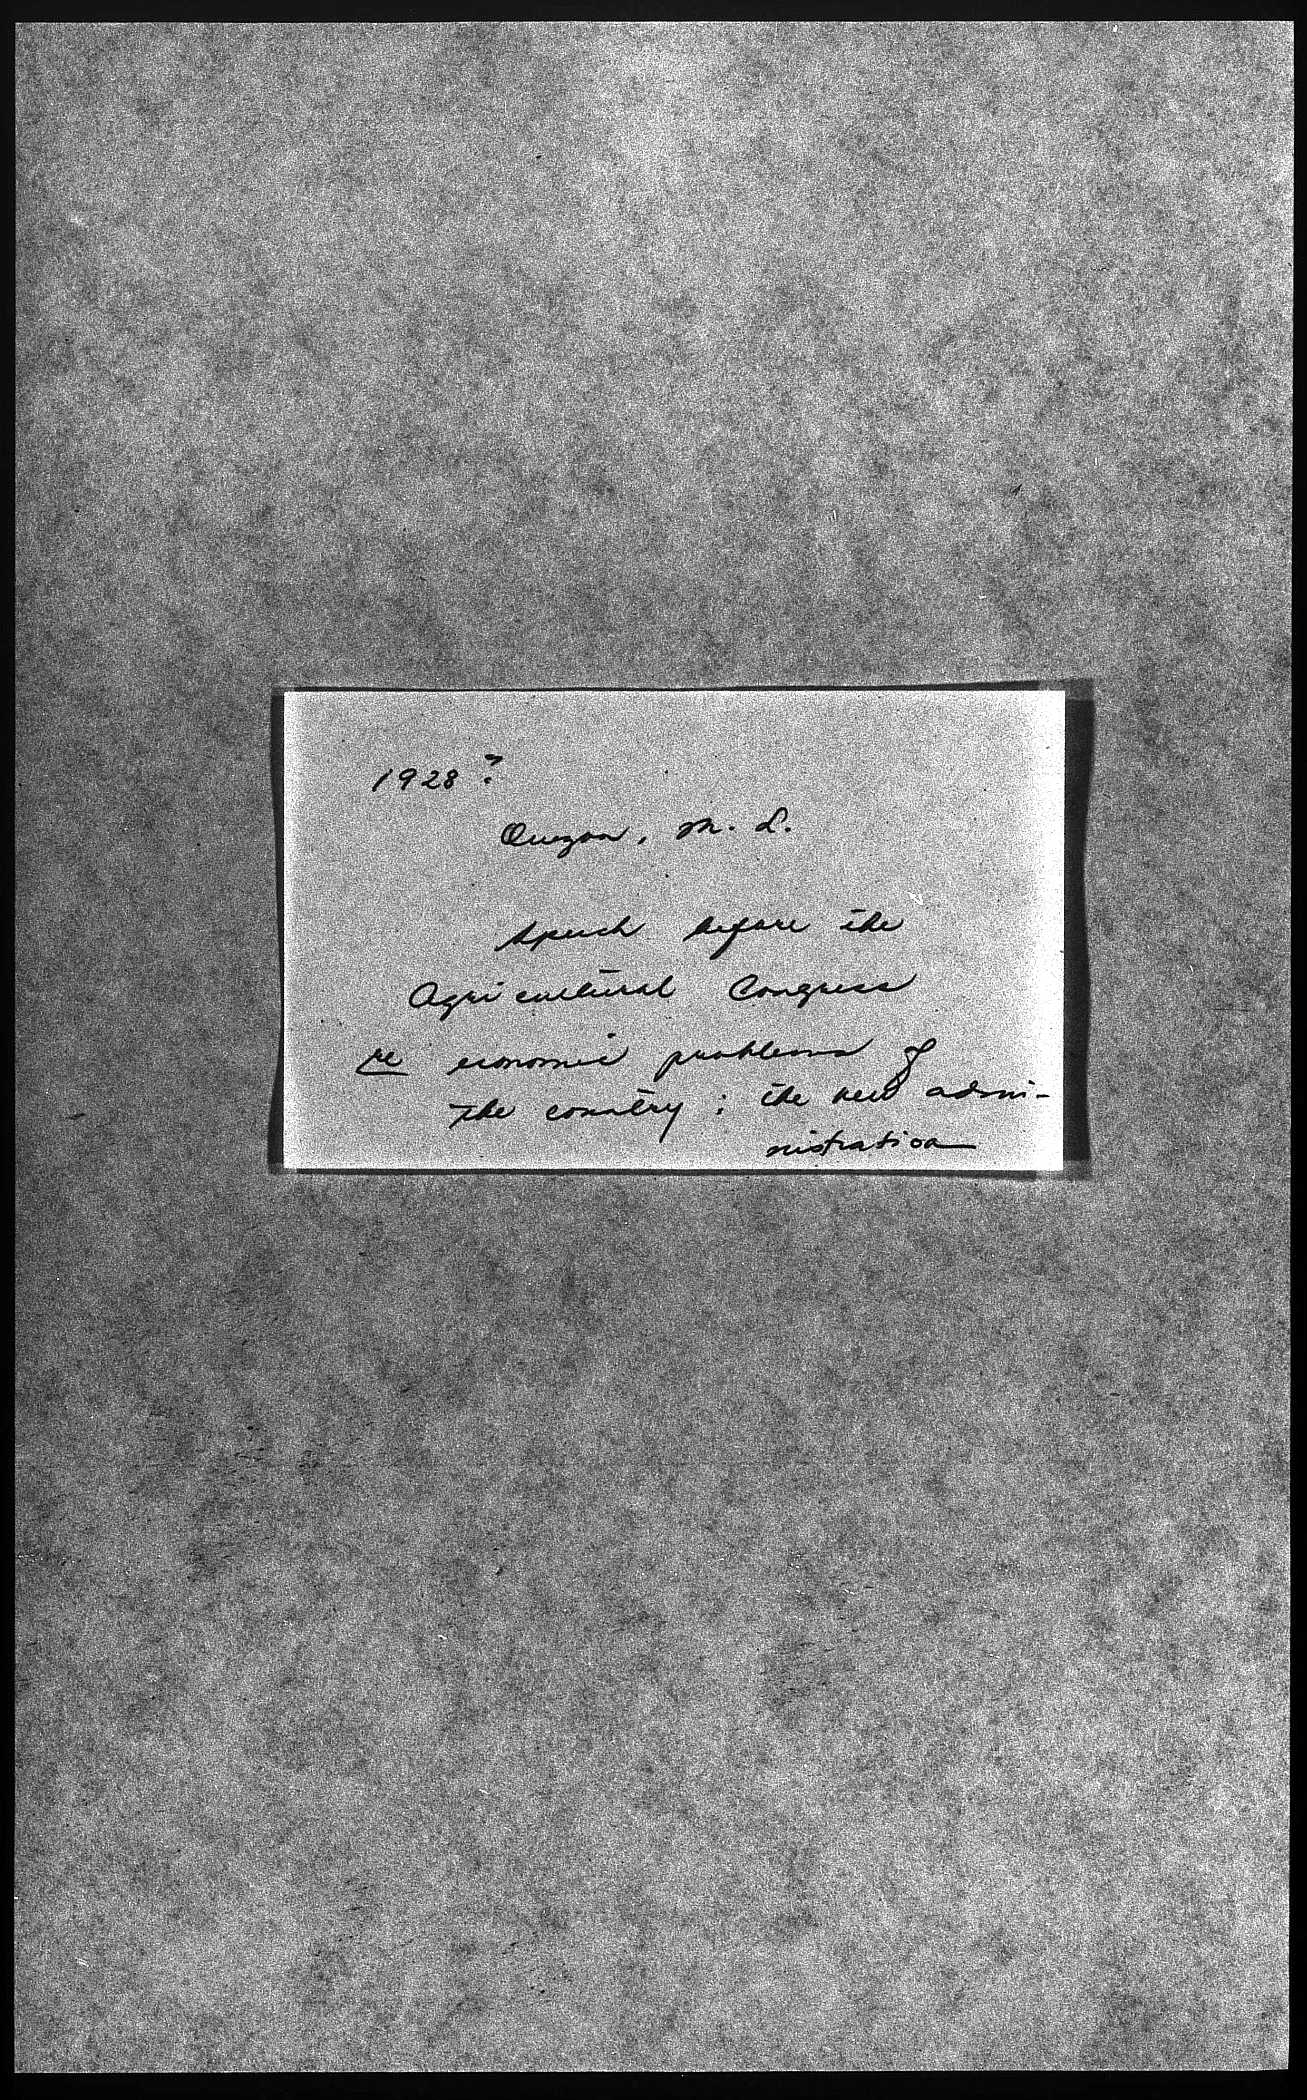 1928 ?
Quezon, M. L.
Speech before the
Agricultural Congress
re economic problems of
the country ; the new admi-
nistration